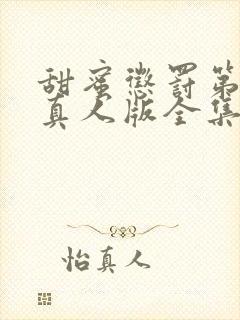 甜蜜惩罚第
真人版全集
怡真人